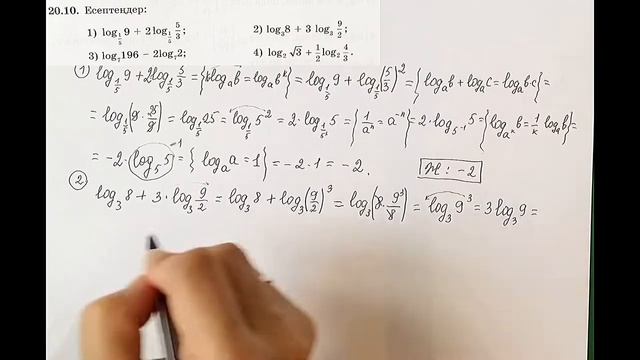 20.10. Есептеңдер:
1) log_{1/5} 9 + 2 log_{1/5} 5/3; 2) log_3 8 + 3 log_3 9/2;
3) log_7 196 − 2log_7 2; 4) log_2 √3 + 1/2 log_2 4/3.
① log_{1/5} 9 + 2log_{1/5} 5/3 = {k log_a b = log_a b^k} = log_{1/5} 9 + log_{1/5} (5/3)^2 = {log_a b + log_a c = log_a b·c} =
= log_{1/5} (9 · 25/9) = log_{1/5} 25 = log_{1/5} 5^2 = 2 · log_{1/5} 5 = {1/a^n = a^{-n}} = 2 · log_{5^{-1}} 5 = {log_{a^k} b = 1/k log_a b} =
= −2 · log_5 5 = {log_a a = 1} = −2 · 1 = −2. Ж: −2
② log_3 8 + 3 · log_3 9/2 = log_3 8 + log_3 (9/2)^3 = log_3 (8 · 9^3/8) = log_3 9^3 = 3 log_3 9 =